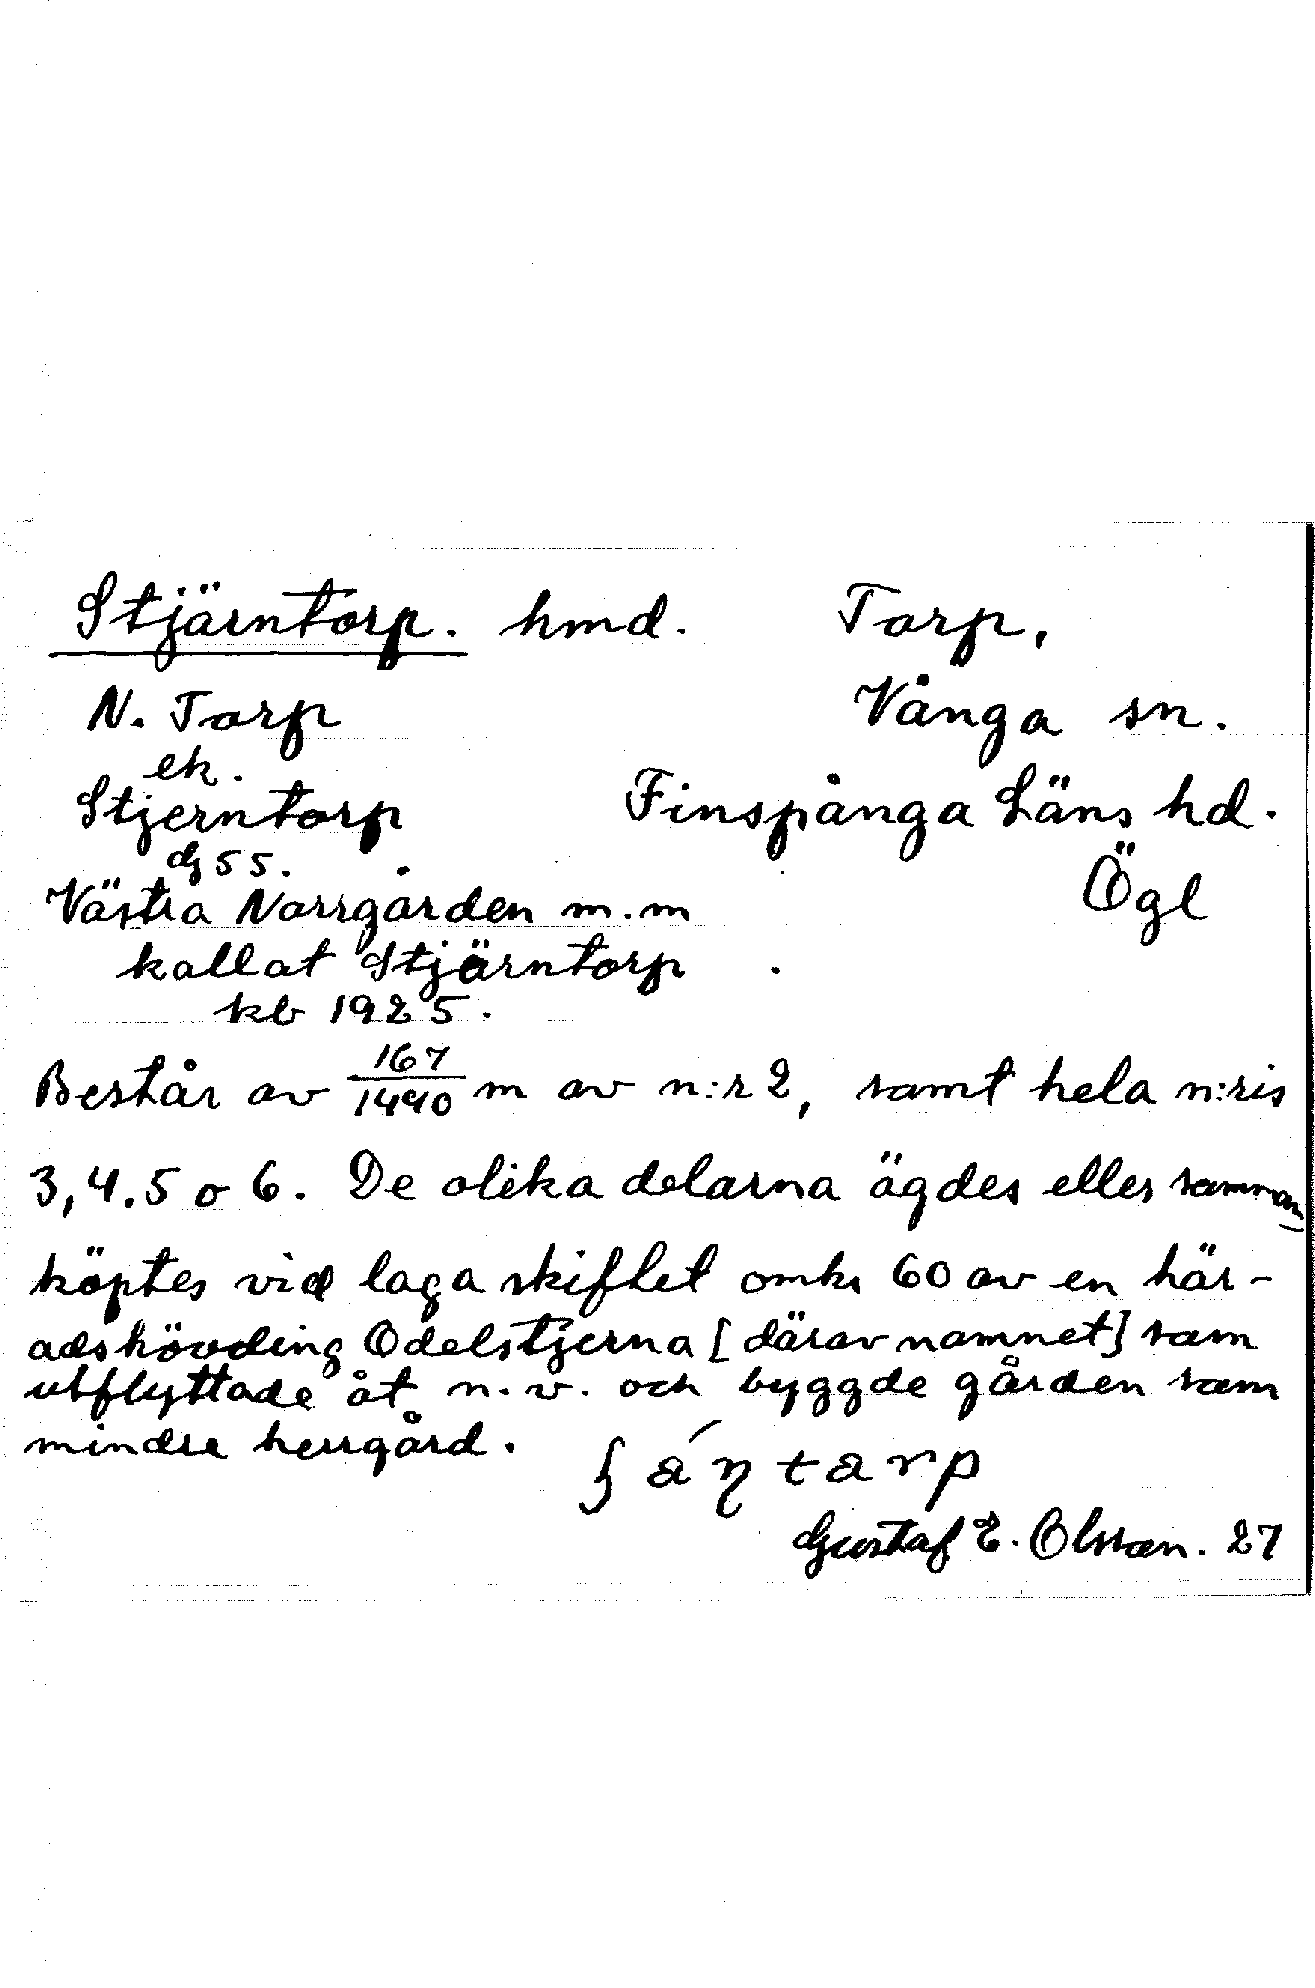 Stjärntorp. hmd. Torp,
N. Torp Vånga sn.
ek.
Stjerntorp Finspånga Läns hd.
dj 55.
Västra Norrgården m.m Ögl
kallat Stjärntorp
kb 1925.
Består av 167/1440 m av n:r 2, samt hela n:ris
3,4.5 o 6. De olika delarna ägdes eller samman
köptes vid laga skiftet omkr 60 av en här-
adshövding Odelstjerna [därav namnet] som
utflyttade åt n.v. och byggde gården som
mindre herrgård.
Gustaf E. Olsson. 27